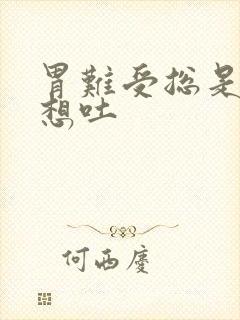 胃難受総是
想吐
何西慶